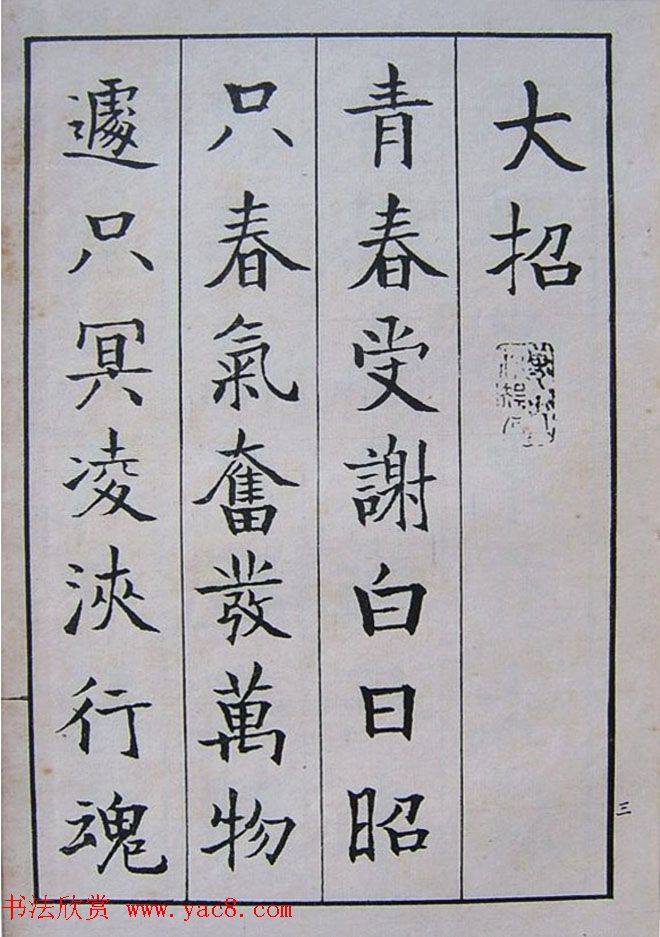 大招
青春受謝白日昭
只春氣奮發萬物
遽只冥凌浹行魂
三
书法欣赏 www.yac8.com